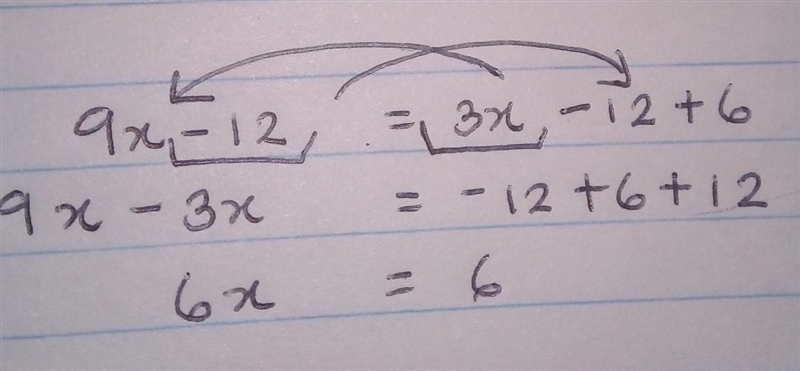 9x - 12 = 3x - 12 + 6
9x - 3x = -12 + 6 + 12
6x = 6